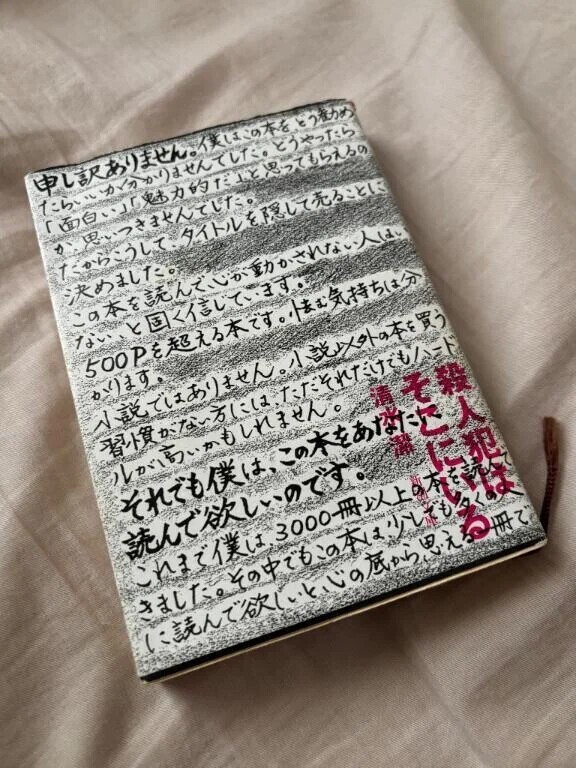 申し訳ありません。僕はこの本をどう勧め
たらいいか分かりませんでした。どうやったら
「面白い」「魅力的だ」と思ってもらえるの
か、思いつきませんでした。
だからこうして、タイトルを隠して売ることに
決めました。
この本を読んで心が動かされない人はい
ない、と固く信じています。
500Pを超える本です。怯む気持ちは分
かります。
小説ではありません。小説以外の本を買う
習慣がない方には、ただそれだけでもハード
ルが高いかもしれません。
それでも僕は、この本をあなたに
読んで欲しいのです。
これまで僕は3000冊以上の本を読んで
きました。その中でもこの本は、少しでも多くの人
に読んで欲しいと心の底から思える一冊で
殺人犯は
そこにいる
清水潔
新潮文庫